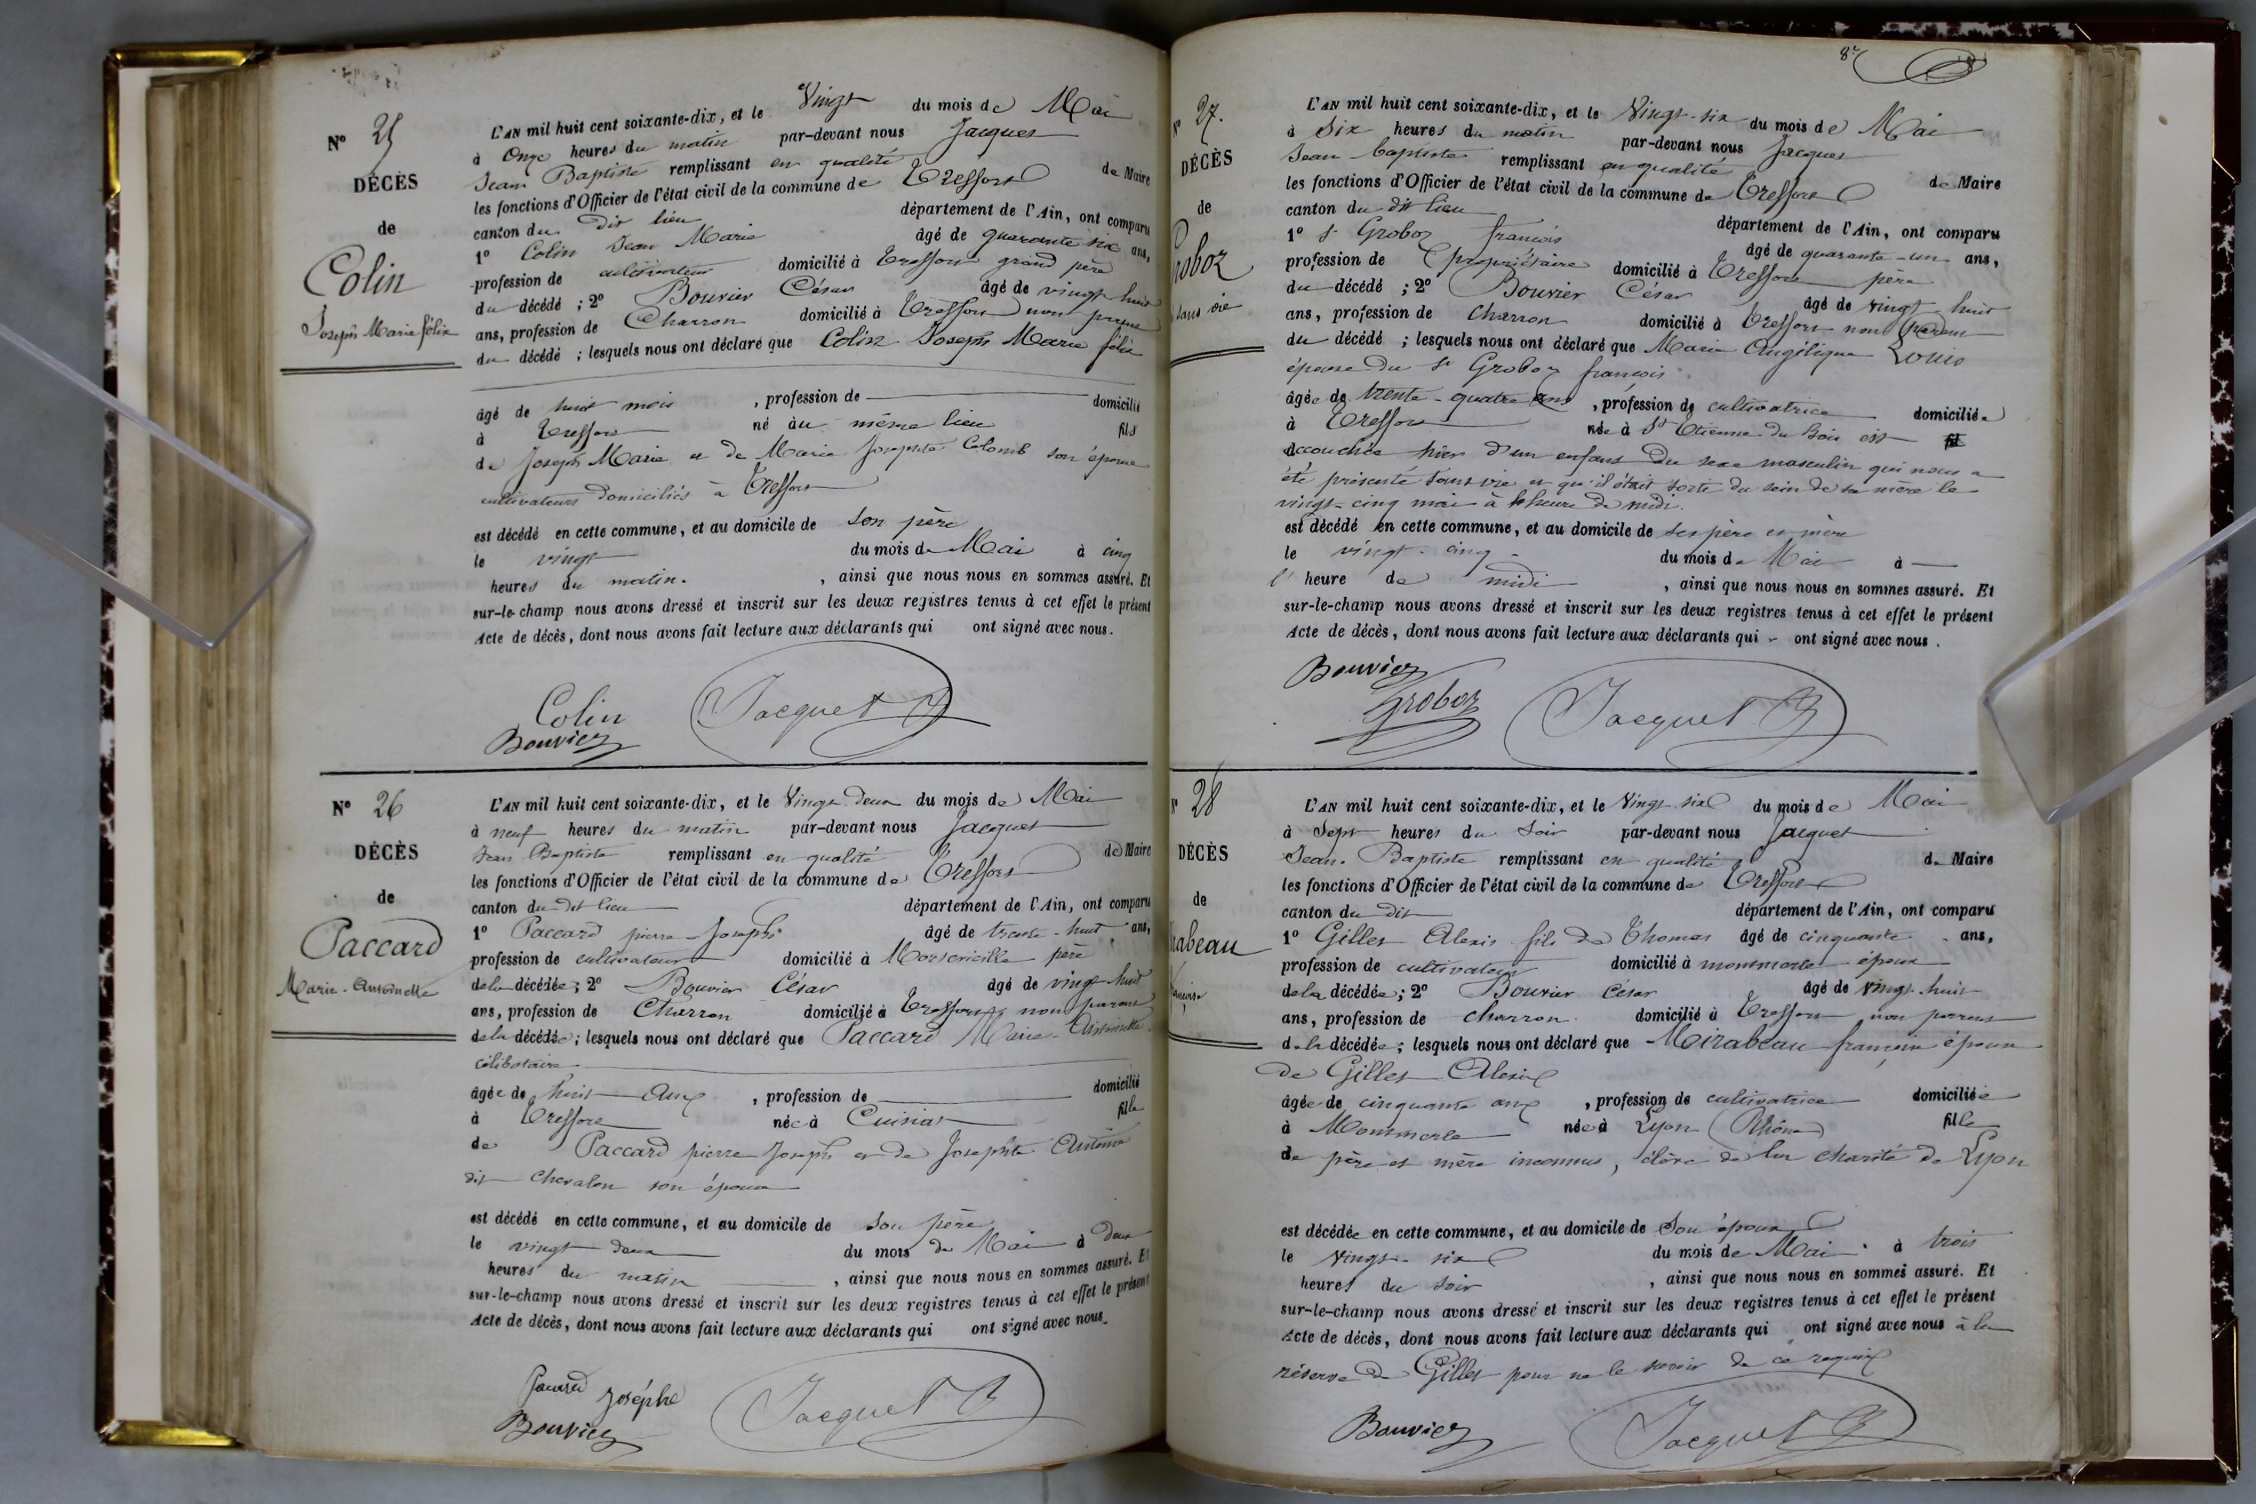 Nº 25
DÉCÈS
de
Colin
Joseph Marie félix
L'AN mil huit cent soixante-dix, et le Vingt du mois de Mai
à Onze heures du matin par-devant nous Jacquet
Jean Baptiste remplissant en qualité de Maire
les fonctions d'Officier de l'état civil de la commune de Treffort
canton du dit lieu département de l'Ain, ont comparu
1º Colin Jean Marie âgé de quarante six ans,
profession de cultivateur domicilié à Treffort grand père
du décédé ; 2º Bouvier César âgé de vingt huit
ans, profession de Charron domicilié à Treffort non parent
du décédé ; lesquels nous ont déclaré que Colin Joseph Marie félix
âgé de huit mois , profession de domicilié
à Treffort né au même lieu fils
de Joseph Marie et de Marie Josephte Colomb son épouse
cultivateurs domiciliés à Treffort
est décédé en cette commune, et au domicile de son père
le vingt du mois de Mai à cinq
heures du matin. , ainsi que nous nous en sommes assuré. Et
sur-le-champ nous avons dressé et inscrit sur les deux registres tenus à cet effet le présent
Acte de décès, dont nous avons fait lecture aux déclarants qui ont signé avec nous.
Colin Jacquet
Bouvier
Nº 26
DÉCÈS
de
Paccard
Marie-Antoinette
L'AN mil huit cent soixante-dix, et le Vingt deux du mois de Mai
à neuf heures du matin par-devant nous Jacquet
Jean Baptiste remplissant en qualité de Maire
les fonctions d'Officier de l'état civil de la commune de Treffort
canton du dit lieu département de l'Ain, ont comparu
1º Paccard pierre Joseph âgé de trente-huit ans,
profession de cultivateur domicilié à père
de la décédée ; 2º Bouvier César âgé de vingt huit
ans, profession de Charron domicilié à Treffort non parent
de la décédée ; lesquels nous ont déclaré que Paccard Marie-Antoinette
célibataire
âgée de huit ans , profession de domicilié
à Treffort née à Cuisiat fille
de Paccard pierre Joseph et de Josephte Antoine
dit Chevalon son épouse
est décédé en cette commune, et au domicile de son père
le vingt deux du mois de Mai à deux
heures du matin , ainsi que nous nous en sommes assuré. Et
sur-le-champ nous avons dressé et inscrit sur les deux registres tenus à cet effet le présent
Acte de décès, dont nous avons fait lecture aux déclarants qui ont signé avec nous.
josephe Jacquet
Bouvier
Nº 27.
DÉCÈS
de
roboz
sans vie
L'AN mil huit cent soixante-dix, et le Vingt-six du mois de Mai
à Six heures du matin par-devant nous Jacquet
Jean-baptiste remplissant en qualité de Maire
les fonctions d'Officier de l'état civil de la commune de Treffort
canton du dit lieu département de l'Ain, ont comparu
1º Sr Groboz françois âgé de quarante-un ans,
profession de propriétaire domicilié à Treffort père
du décédé ; 2º Bouvier César âgé de vingt huit
ans, profession de charron domicilié à Treffort non parent
du décédé ; lesquels nous ont déclaré que Marie Angélique Louis
épouse du Sr Groboz françois
âgée de trente-quatre ans , profession de cultivatrice domiciliée
à Treffort née à St Etienne du bois est
accouchée hier d'un enfant du sexe masculin qui nous a
été présenté sans vie et qu'il était sorti du sein de sa mère le
vingt-cinq mai à l'heure de midi.
est décédé en cette commune, et au domicile de ses père et mère
le vingt-cinq du mois de Mai à
l'heure de midi , ainsi que nous nous en sommes assuré. Et
sur-le-champ nous avons dressé et inscrit sur les deux registres tenus à cet effet le présent
Acte de décès, dont nous avons fait lecture aux déclarants qui ont signé avec nous.
Bouvier
Groboz Jacquet
Nº 28
DÉCÈS
de
rabeau
L'AN mil huit cent soixante-dix, et le Vingt-six du mois de Mai
à Sept heures du soir par-devant nous Jacquet
Jean-Baptiste remplissant en qualité de Maire
les fonctions d'Officier de l'état civil de la commune de Treffort
canton du dit département de l'Ain, ont comparu
1º Gillet Alexis fils de Thomas âgé de cinquante ans,
profession de cultivateur domicilié à montmerle époux
de la décédée ; 2º Bouvier César âgé de vingt-huit
ans, profession de charron domicilié à Treffort non parent
de la décédée ; lesquels nous ont déclaré que Mirabeau françoise épouse
de Gillet Alexis
âgée de cinquante ans , profession de cultivatrice domiciliée
à Montmerle née à Lyon (Rhône) fille
de père et mère inconnus, élève de la charité de Lyon
est décédée en cette commune, et au domicile de son époux
le Vingt-six du mois de Mai à trois
heures du soir , ainsi que nous nous en sommes assuré. Et
sur-le-champ nous avons dressé et inscrit sur les deux registres tenus à cet effet le présent
Acte de décès, dont nous avons fait lecture aux déclarants qui ont signé avec nous à la
réserve de Gillet pour ne le savoir de ce requis
Bouvier Jacquet